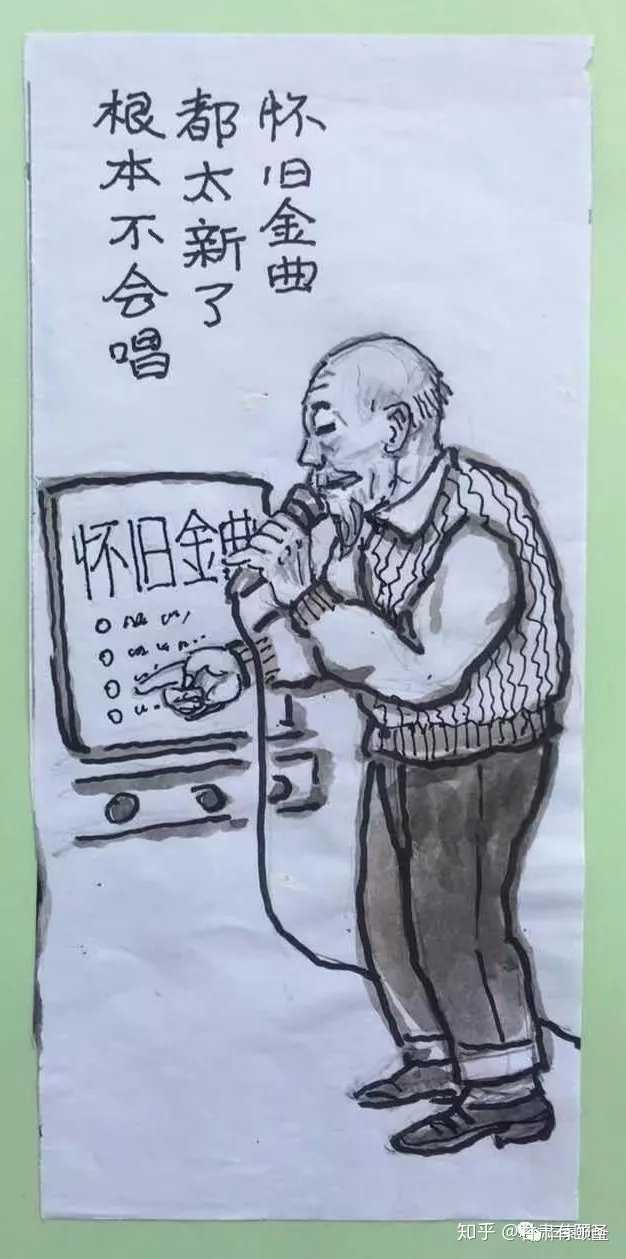 怀旧金曲
都太新了
根本不会唱
怀旧金曲
知乎